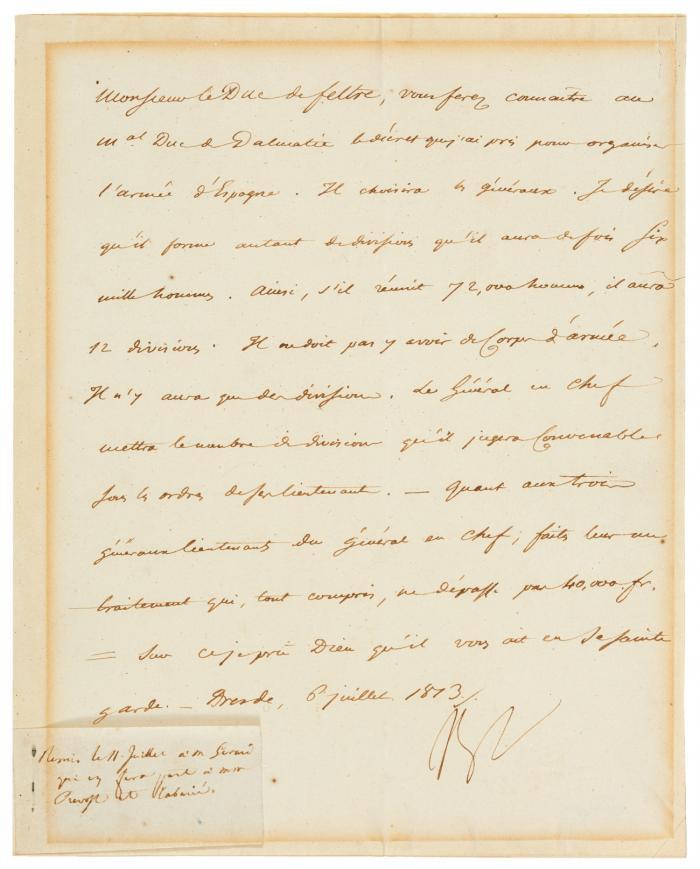 Monsieur le Duc de feltre, vous ferez connaitre au
mal Duc de Dalmatie le décret que j'ai pris pour organiser
l'armée d'Espagne. Il choisira les généraux. Je désire
qu'il forme autant de divisions qu'il aura de fois six
mille hommes. Ainsi, s'il réunit 72,000 hommes, il aura
12 divisions. Il ne doit pas y avoir de Corps d'armée,
Il n'y aura que des division. Le Général en chef
mettra le nombre de division qu'il jugera Convenable
sous les ordres de ses lieutenant. — Quant aux trois
généraux lieutenants du général en chef, faites leur un
traitement qui, tout compris, ne dépasse pas 40,000 fr.
= Sur ce je prie Dieu qu'il vous ait en Sa sainte
garde. — Dresde, 6 juillet 1813.
Remis le 11 Juillet à m Gerard
qui en fera part à mrs
Prevost et